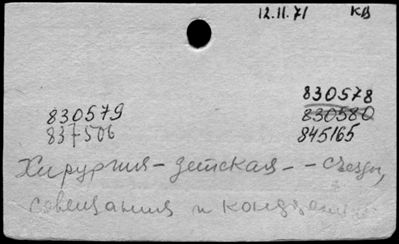 12.11.71 КВ
830578
830579 830580
837506 845165
Хирургия - детская - - съезды,
совещания и конференции